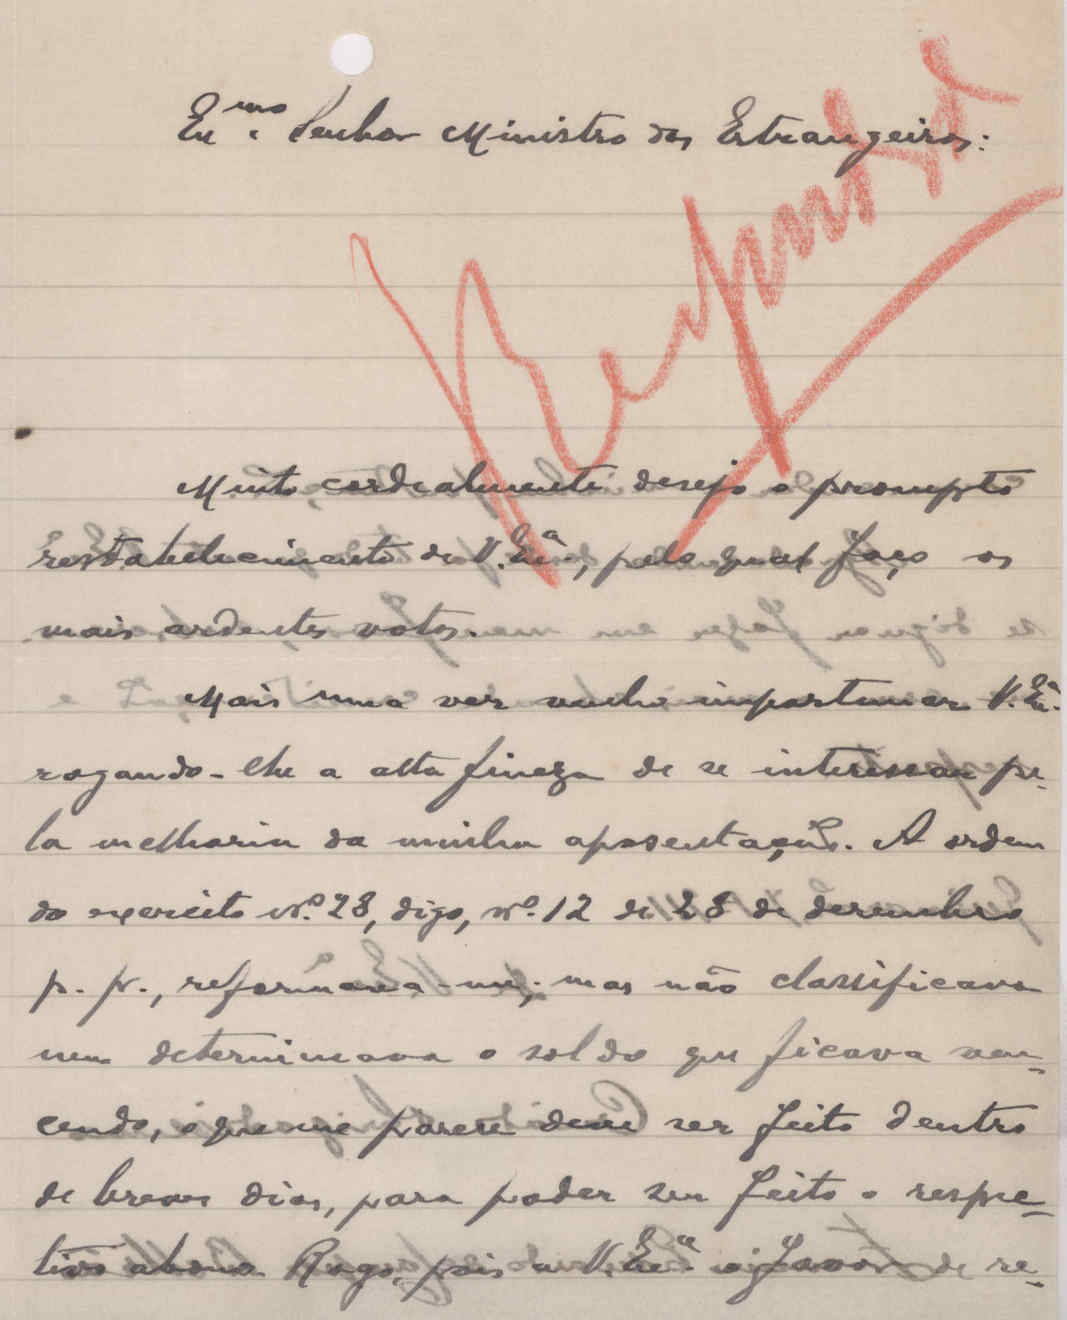 Exmo. Senhor Ministro dos Estrangeiros:
Respondida
Muito cordealmente desejo o prompto
restabelecimento de V. Exa, pelo qual faço os
mais ardentes votos.
Mais uma vez venho importunar V. Exa.
rogando-lhe a alta fineza de se interessar pe-
la melhoria da minha aposentação. A ordem
do exercito nº. 28, digo, nº. 12 de 28 de dezembro
p. p., reformava-me, mas não classificava
nem determinava o soldo que ficava ven-
cendo, o que me parece deve ser feito dentro
de breves dias, para poder ser feito o respe-
tivo abono. Rogo, pois a V. Exa. o favor de re-